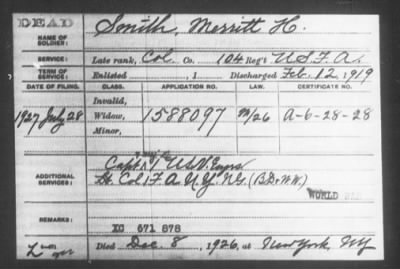 DEAD
NAME OF SOLDIER: Smith, Merritt H.
SERVICE: Late rank, Col. Co. 104 Reg't U.S.F.A.
TERM OF SERVICE: Enlisted , 1 Discharged Feb. 12, 1919
DATE OF FILING. CLASS. APPLICATION NO. LAW. CERTIFICATE NO.
Invalid,
1927 July 28 Widow, 1588097 A-6-28-28
Minor,
ADDITIONAL SERVICES: Capt. 1 U.S.V. Engrs
Lt. Col. 1 F.A. N.Y. N.G. (B.D. W.W.)
WORLD
REMARKS: XC 671 878
Died Dec. 8, 1926, at New York, NY